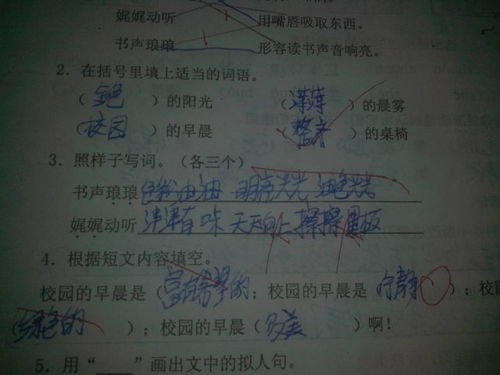 娓娓动听 用嘴唇吸取东西。
书声琅琅 形容读书声音响亮。
2. 在括号里填上适当的词语。
( 色 )的阳光 ( )的晨雾
( 校园 )的早晨 ( 整齐 )的桌椅
3. 照样子写词。(各三个)
书声琅琅 油油 油色光光
娓娓动听 津津有味 天天向上 擦擦黑板
4. 根据短文内容填空。
校园的早晨是( 富有希望的 ; 校园的早晨是( 宁静 ); 校园
( 绿色的 ); 校园的早晨( 多美 )啊!
5. 用“____”画出文中的拟人句。